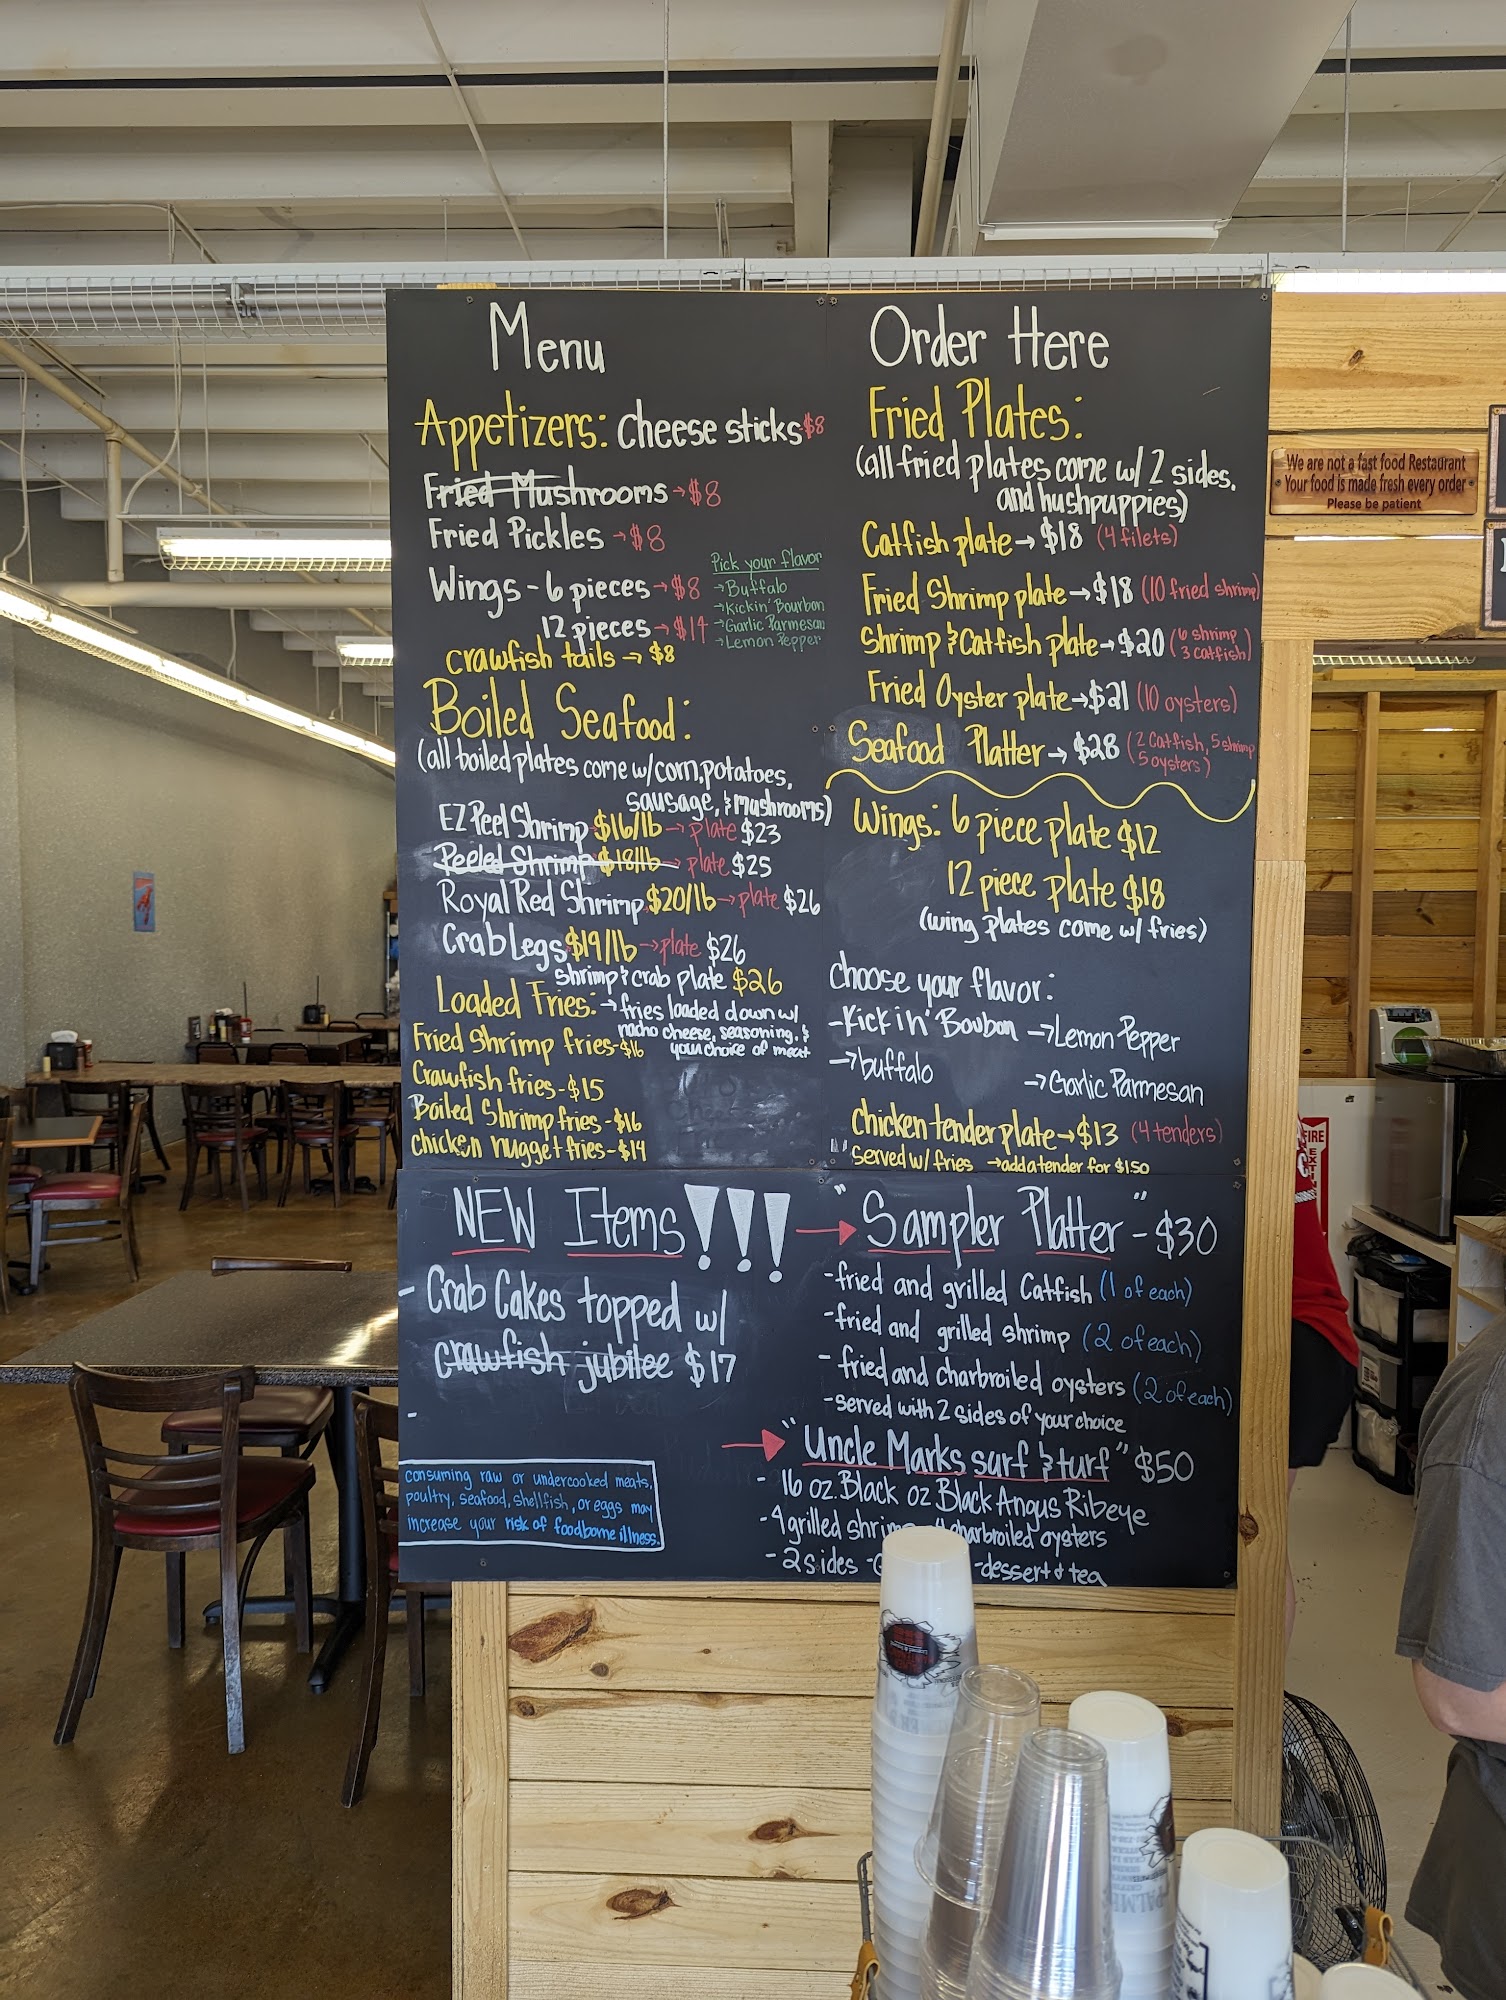 Menu
Appetizers: Cheese sticks $8
Fried Mushrooms → $8
Fried Pickles → $8
Wings - 6 pieces → $8
12 pieces → $14
Pick your flavor
→ Buffalo
→ Kickin' Bourbon
→ Garlic Parmesan
→ Lemon Pepper
crawfish tails → $8
Boiled Seafood:
(all boiled plates come w/ corn, potatoes,
sausage, & mushrooms)
EZ Peel Shrimp $16/lb → plate $23
Peeled Shrimp $18/lb → plate $25
Royal Red Shrimp $20/lb → plate $26
Crab Legs $19/lb → plate $26
shrimp & crab plate $26
Loaded Fries: → fries loaded down w/
nacho cheese, seasoning, &
your choice of meat
Fried Shrimp fries - $16
Crawfish fries - $15
Boiled Shrimp fries - $16
chicken nugget fries - $14
Order Here
Fried Plates:
(all fried plates come w/ 2 sides.
and hushpuppies)
Catfish plate → $18 (4 filets)
Fried Shrimp plate → $18 (10 fried shrimp)
Shrimp & Catfish plate → $20 (6 shrimp
3 catfish)
Fried Oyster plate → $21 (10 oysters)
Seafood Platter → $28 (2 Catfish, 5 shrimp
5 oysters)
Wings: 6 piece plate $12
12 piece plate $18
(wing plates come w/ fries)
choose your flavor:
- Kickin' Boubon → Lemon Pepper
→ buffalo → Garlic Parmesan
chicken tender plate → $13 (4 tenders)
served w/ fries → add a tender for $1.50
NEW Items!!!
- Crab Cakes topped w/
crawfish jubilee $17
-
consuming raw or undercooked meats,
poultry, seafood, shellfish, or eggs may
increase your risk of foodborne illness.
→ "Sampler Platter" - $30
- fried and grilled Catfish (1 of each)
- fried and grilled shrimp (2 of each)
- fried and charbroiled oysters (2 of each)
- served with 2 sides of your choice
→ "Uncle Marks surf & turf" $50
- 16 oz. Black oz Black Angus Ribeye
- 4 grilled charbroiled oysters
- 2 sides - dessert & tea
We are not a fast food Restaurant
Your food is made fresh every order
Please be patient
FIRE